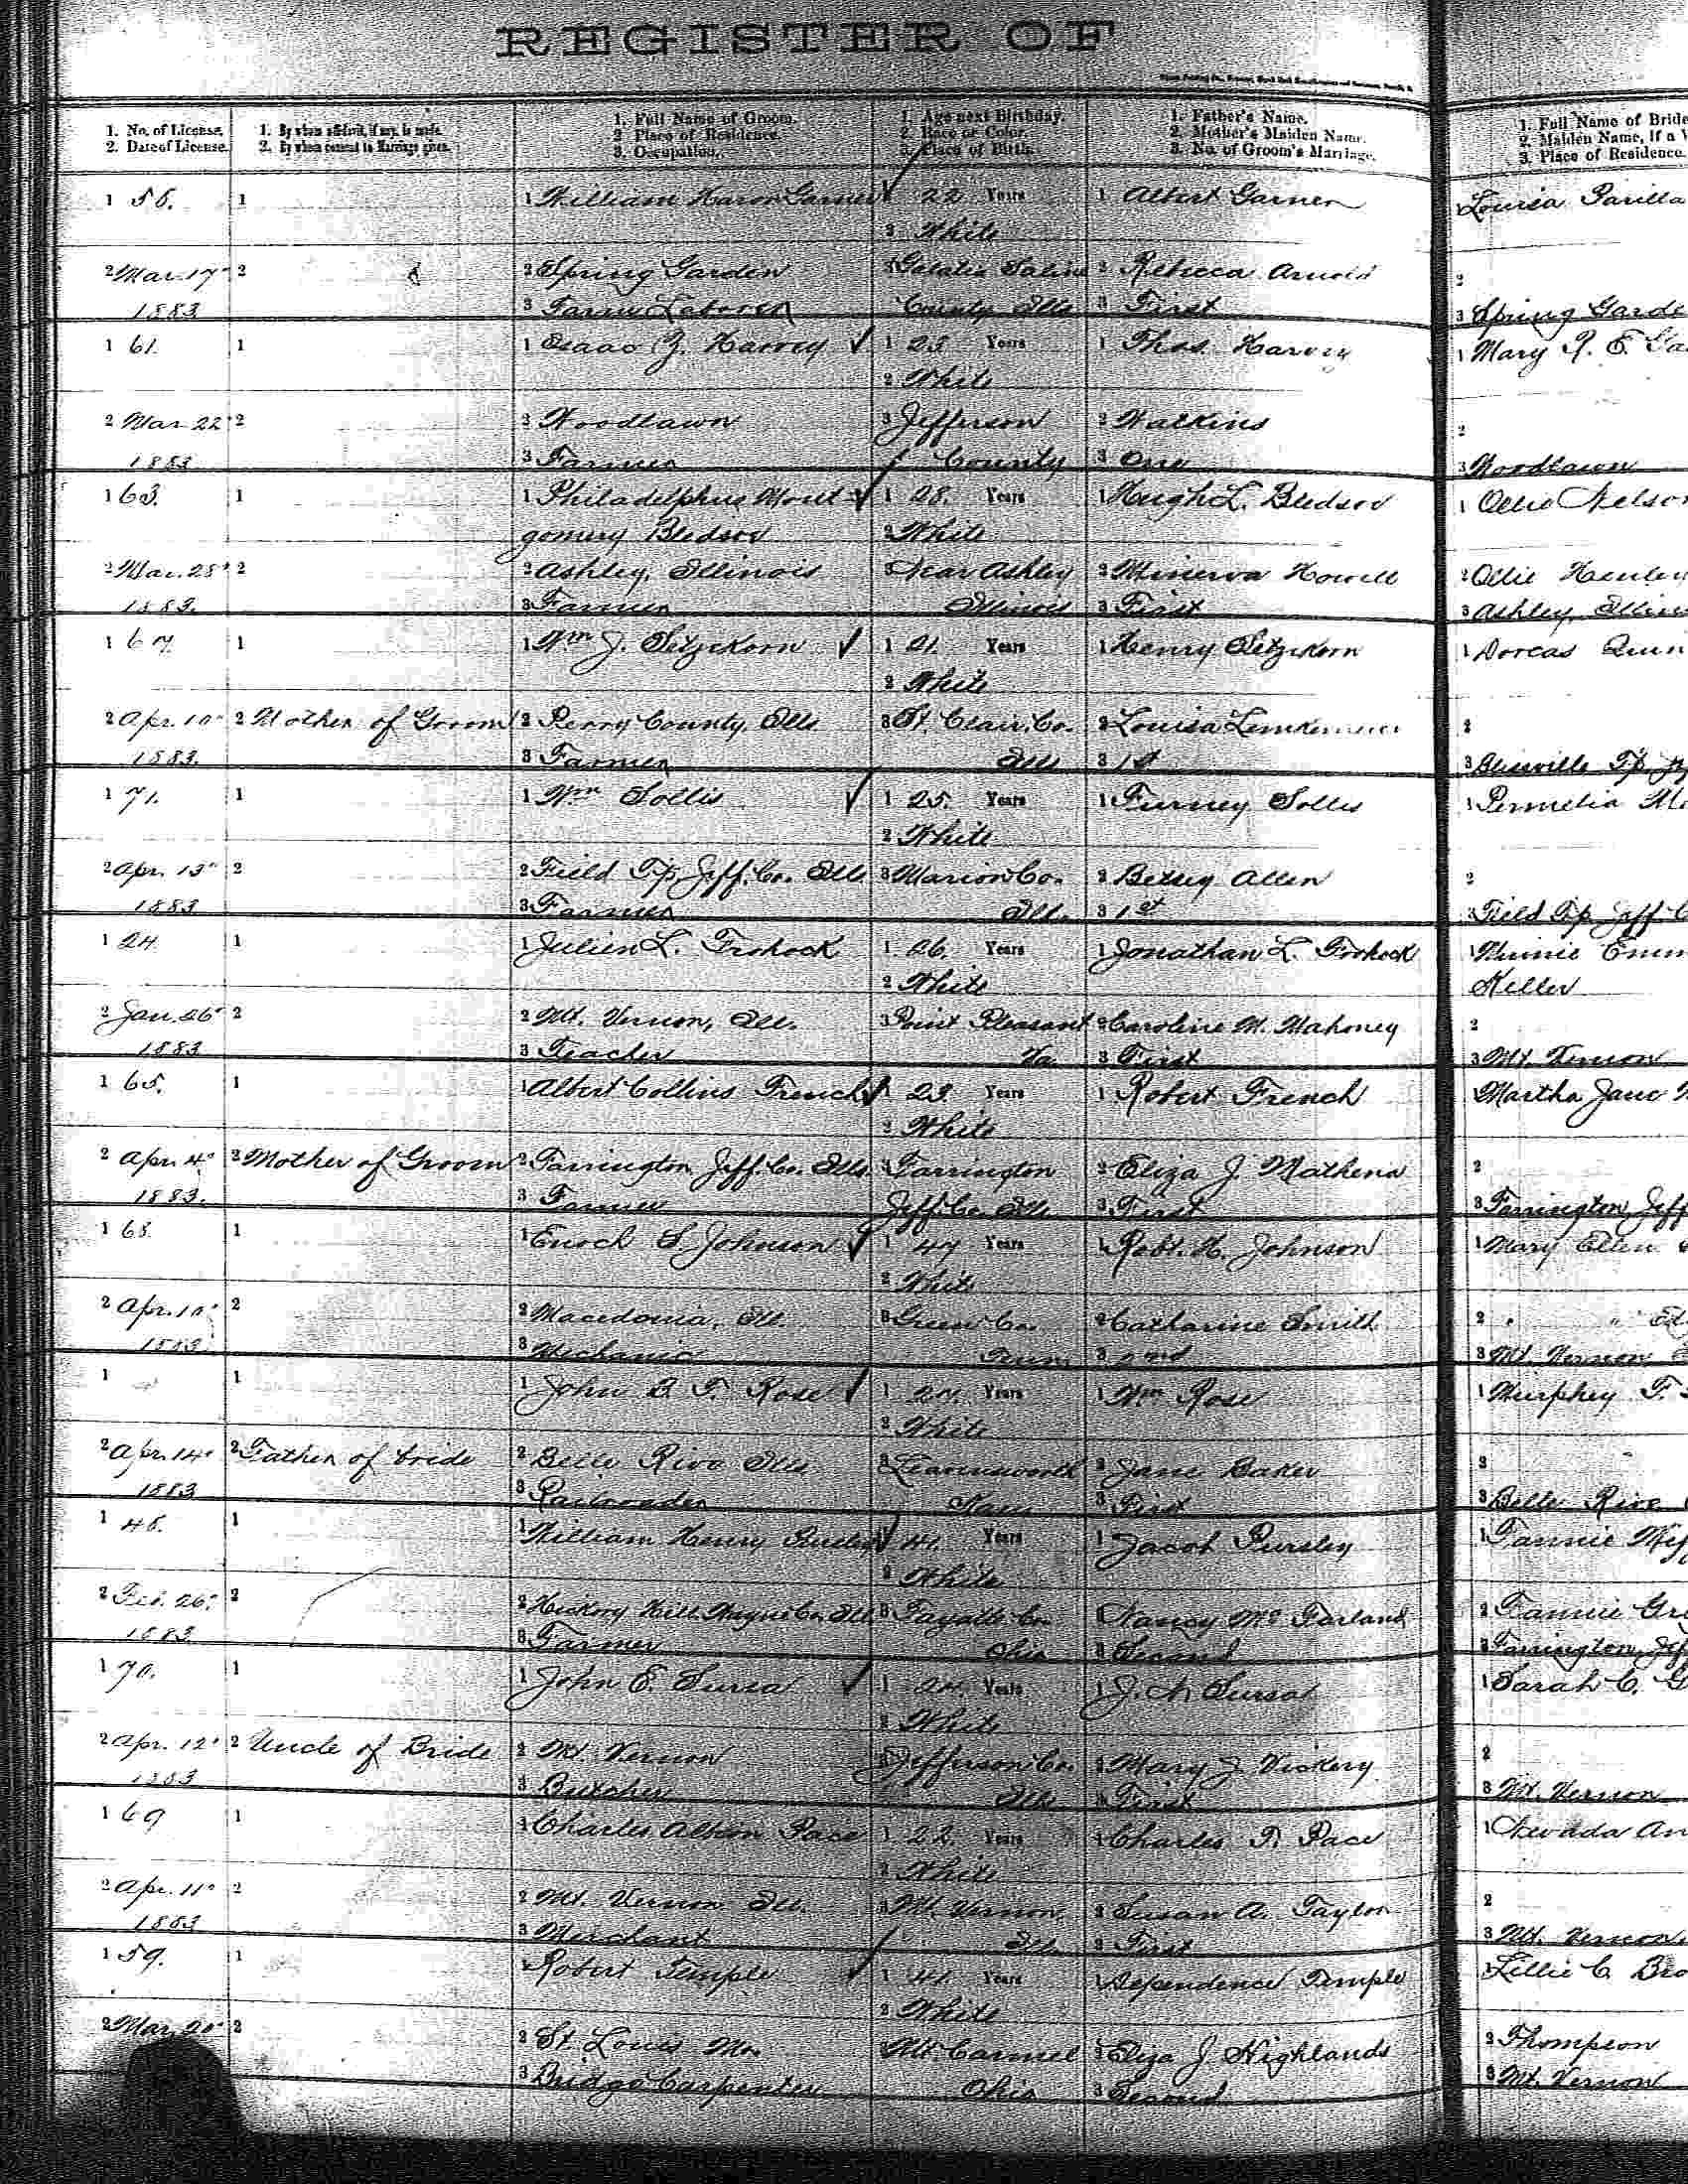 REGISTER OF
1. No. of License. 1. By whom affidavit, if any, is made. 1. Full Name of Groom. 1. Age next Birthday. 1. Father's Name. 1. Full Name of Bride
2. Date of License. 2. By whom consent to Marriage given. 2. Place of Residence. 2. Race or Color. 2. Mother's Maiden Name. 2. Maiden Name, if a
3. Occupation. 3. Place of Birth. 3. No. of Groom's Marriage. 3. Place of Residence.
1 56. 1 1 William 22 Years 1 Albert Garner Louisa Parilla
2 White
2 Mar. 17" 2 2 Spring Garden 3 Galatia Saline 2 Rebecca Arnold 2
1883 3 Farm Laborer County Ills 3 First 3 Spring Garde
1 61. 1 1 Isaac Z. Harvey 1 23 Years 1 Thos. Harvey 1 Mary
2 White
2 Mar 22" 2 2 Woodlawn 3 Jefferson 2 Watkins 2
1883 3 Farmer County 3 One 3 Woodlawn
1 63. 1 1 Philadelphus Mont 1 28. Years 1 Hugh L. Bledsoe 1 Ollie Nelson
gomery Bledsoe 2 White
2 Mar. 28" 2 2 Ashley, Illinois 3 Near Ashley 2 Minerva Howell 2 Ollie
1883. 3 Farmer Illinois 3 First 3 Ashley, Illin
1 67 1 1 Wm J. Setzekorn 1 21. Years 1 Henry Setzekorn 1 Dorcas Quin
2 White
2 Apr. 10" 2 Mother of Groom 2 Perry County, Ills 3 St. Clair Co. 2 Louisa 2
1883. 3 Farmer Ills 3 1st 3 Tp.
1 71. 1 1 Wm Sollis 1 25. Years 1 Furney Sollis 1 Permelia
2 White
2 Apr. 13" 2 2 Field Tp. Jeff. Co. Ills 3 Marion Co. 2 Betsey Allen 2
1883 3 Farmer Ill. 3 1st 3 Field Tp Jeff C
1 24. 1 1 Julien L. Frohock 1 26. Years 1 Jonathan L. Frohock 1 Minnie Emm
2 White Keller
2 Jan. 26" 2 2 Mt. Vernon, Ill. 3 Point Pleasant 2 Caroline M. Mahoney 2
1883 3 Teacher Va. 3 First 3 Mt. Vernon
1 65. 1 1 Albert Collins French 23. Years 1 Robert French Martha Jane
2 White
2 Apr. 4" 2 Mother of Groom 2 Farrington, Jeff. Co. Ills. 3 Farrington 2 Eliza J. Mathena 2
1883. 3 Farmer Jeff Co. Ills. 3 First 3 Farrington, Jeff
1 68. 1 1 Enoch S. Johnson 1 47 Years 1 Robt. H. Johnson 1 Mary Ellen
2 White
2 Apr. 10" 2 2 Macedonia, Ill. 3 Green Co. 2 Catharine Smith 2
1883 3 Mechanic Tenn. 3 2nd 3 Mt. Vernon
1 1 1 John B. F. Rose 1 Years 1 Wm Rose 1 Murphey F.
2 White
2 Apr. 14" 2 Father of bride 2 Belle Rive Ills 3 Leavenworth 2 Jane Baker 2
1883 3 Railroader Kans 3 First 3 Belle Rive
1 48. 1 1 William Henry 41. Years 1 Jacob Pursley 1 Fannie
2 White
2 Feb. 26" 2 2 Hickory Hill Wayne Co. Ill 3 Fayette Co. Nancy McFarland 2 Fannie Gre
1883 3 Farmer Ohio 3 Second 3 Farrington, Jef
1 70. 1 1 John E. Sursa 1 Years 1 J. N. Sursa 1 Sarah C. G
2 White
2 Apr. 12" 2 Uncle of Bride 2 Mt Vernon 3 Jefferson Co. 2 Mary J Vickery 2
1883 3 Butcher Ills 3 First 3 Mt. Vernon
1 69 1 1 Charles Albion Pace 1 22. Years 1 Charles T. Pace 1 Nevada An
2 White
2 Apr. 11" 2 2 Mt. Vernon Ill. 3 Mt. Vernon 2 Susan A. Taylor 2
1883 3 Merchant Ill. 3 First 3 Mt. Vernon
1 59. 1 1 Robert Temple 1 41. Years 1 Dependence Temple 1 Lillie C. Bro
2 White
2 Mar. 20" 2 2 St. Louis Mo. Mt. Carmel 2 Eliza J Highlands 2 Thompson
3 Bridge Carpenter Ohio 3 Second 3 Mt. Vernon